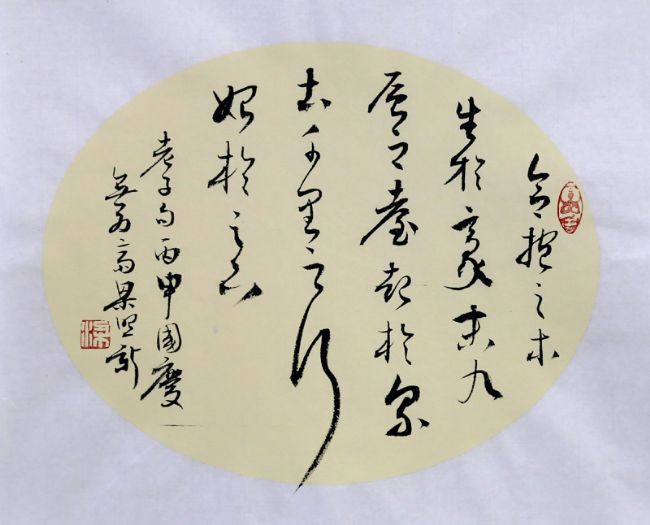 合抱之木
生於毫末九
層之臺起於累
土千里之行
始於足下
老子句丙申國慶
無為高